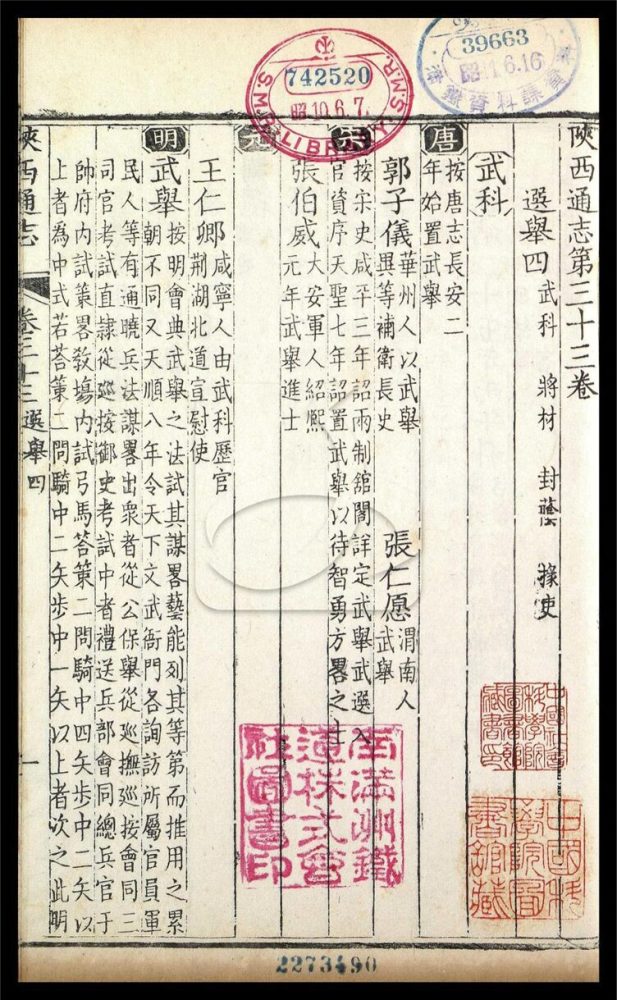 陝西通志第三十三卷
選舉四 武科 將材 封蔭 掾吏
武科
唐
按唐志長安二
年始置武舉
郭子儀 華州人以武舉
異等補衛長史
張仁愿 渭南人
武舉
宋
按宋史咸平三年詔兩制舘閣詳定武舉武選入
官資序天聖七年詔置武舉以待智勇方畧之士
張伯威 大安軍人紹熙
元年武舉進士
元
王仁卿 咸寧人由武科歷官
荊湖北道宣慰使
明
武舉 按明會典武舉之法試其謀畧藝能列其等第而推用之累
朝不同又天順八年令天下文武衙門各詢訪所屬官員軍
民人等有通曉兵法謀畧出衆者從公保舉從廵撫廵按會同三
司官考試直隸從廵按御史考試中者禮送兵部會同總兵官于
帥府內試策畧敎塲內試弓馬答策二問騎中四矢步中二矢以
上者為中式若答策二問騎中二矢步中一矢以上者次之此明
陝西通志 卷三十三 選舉四 一
742520
昭10.6.7
S.M.R. LIBRARY S.M.R.
39663
6.16
南滿洲鐵
道株式會
社圖書印
中國社會
科學院
圖書館
藏書印
中國科
學院圖
書館藏
2273490